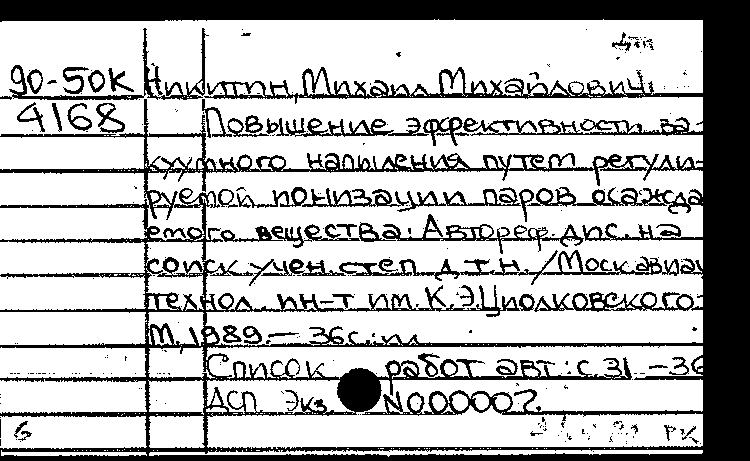 90-50К Никитин, Михаил Михайлович.
4168 Повышение эффективности ва-
куумного напыления путем регули-
руемой ионизации паров осажда
емого вещества: Автореф. дис. на
соиск. учен. степ. д.т.н. / Моск авиац
технол. ин-т им. К.Э.Циолковского.-
М., 1989.- 36с.:ил
Список работ авт.: с. 31 - 36
ДСП. Экз. N000007.
6 РК